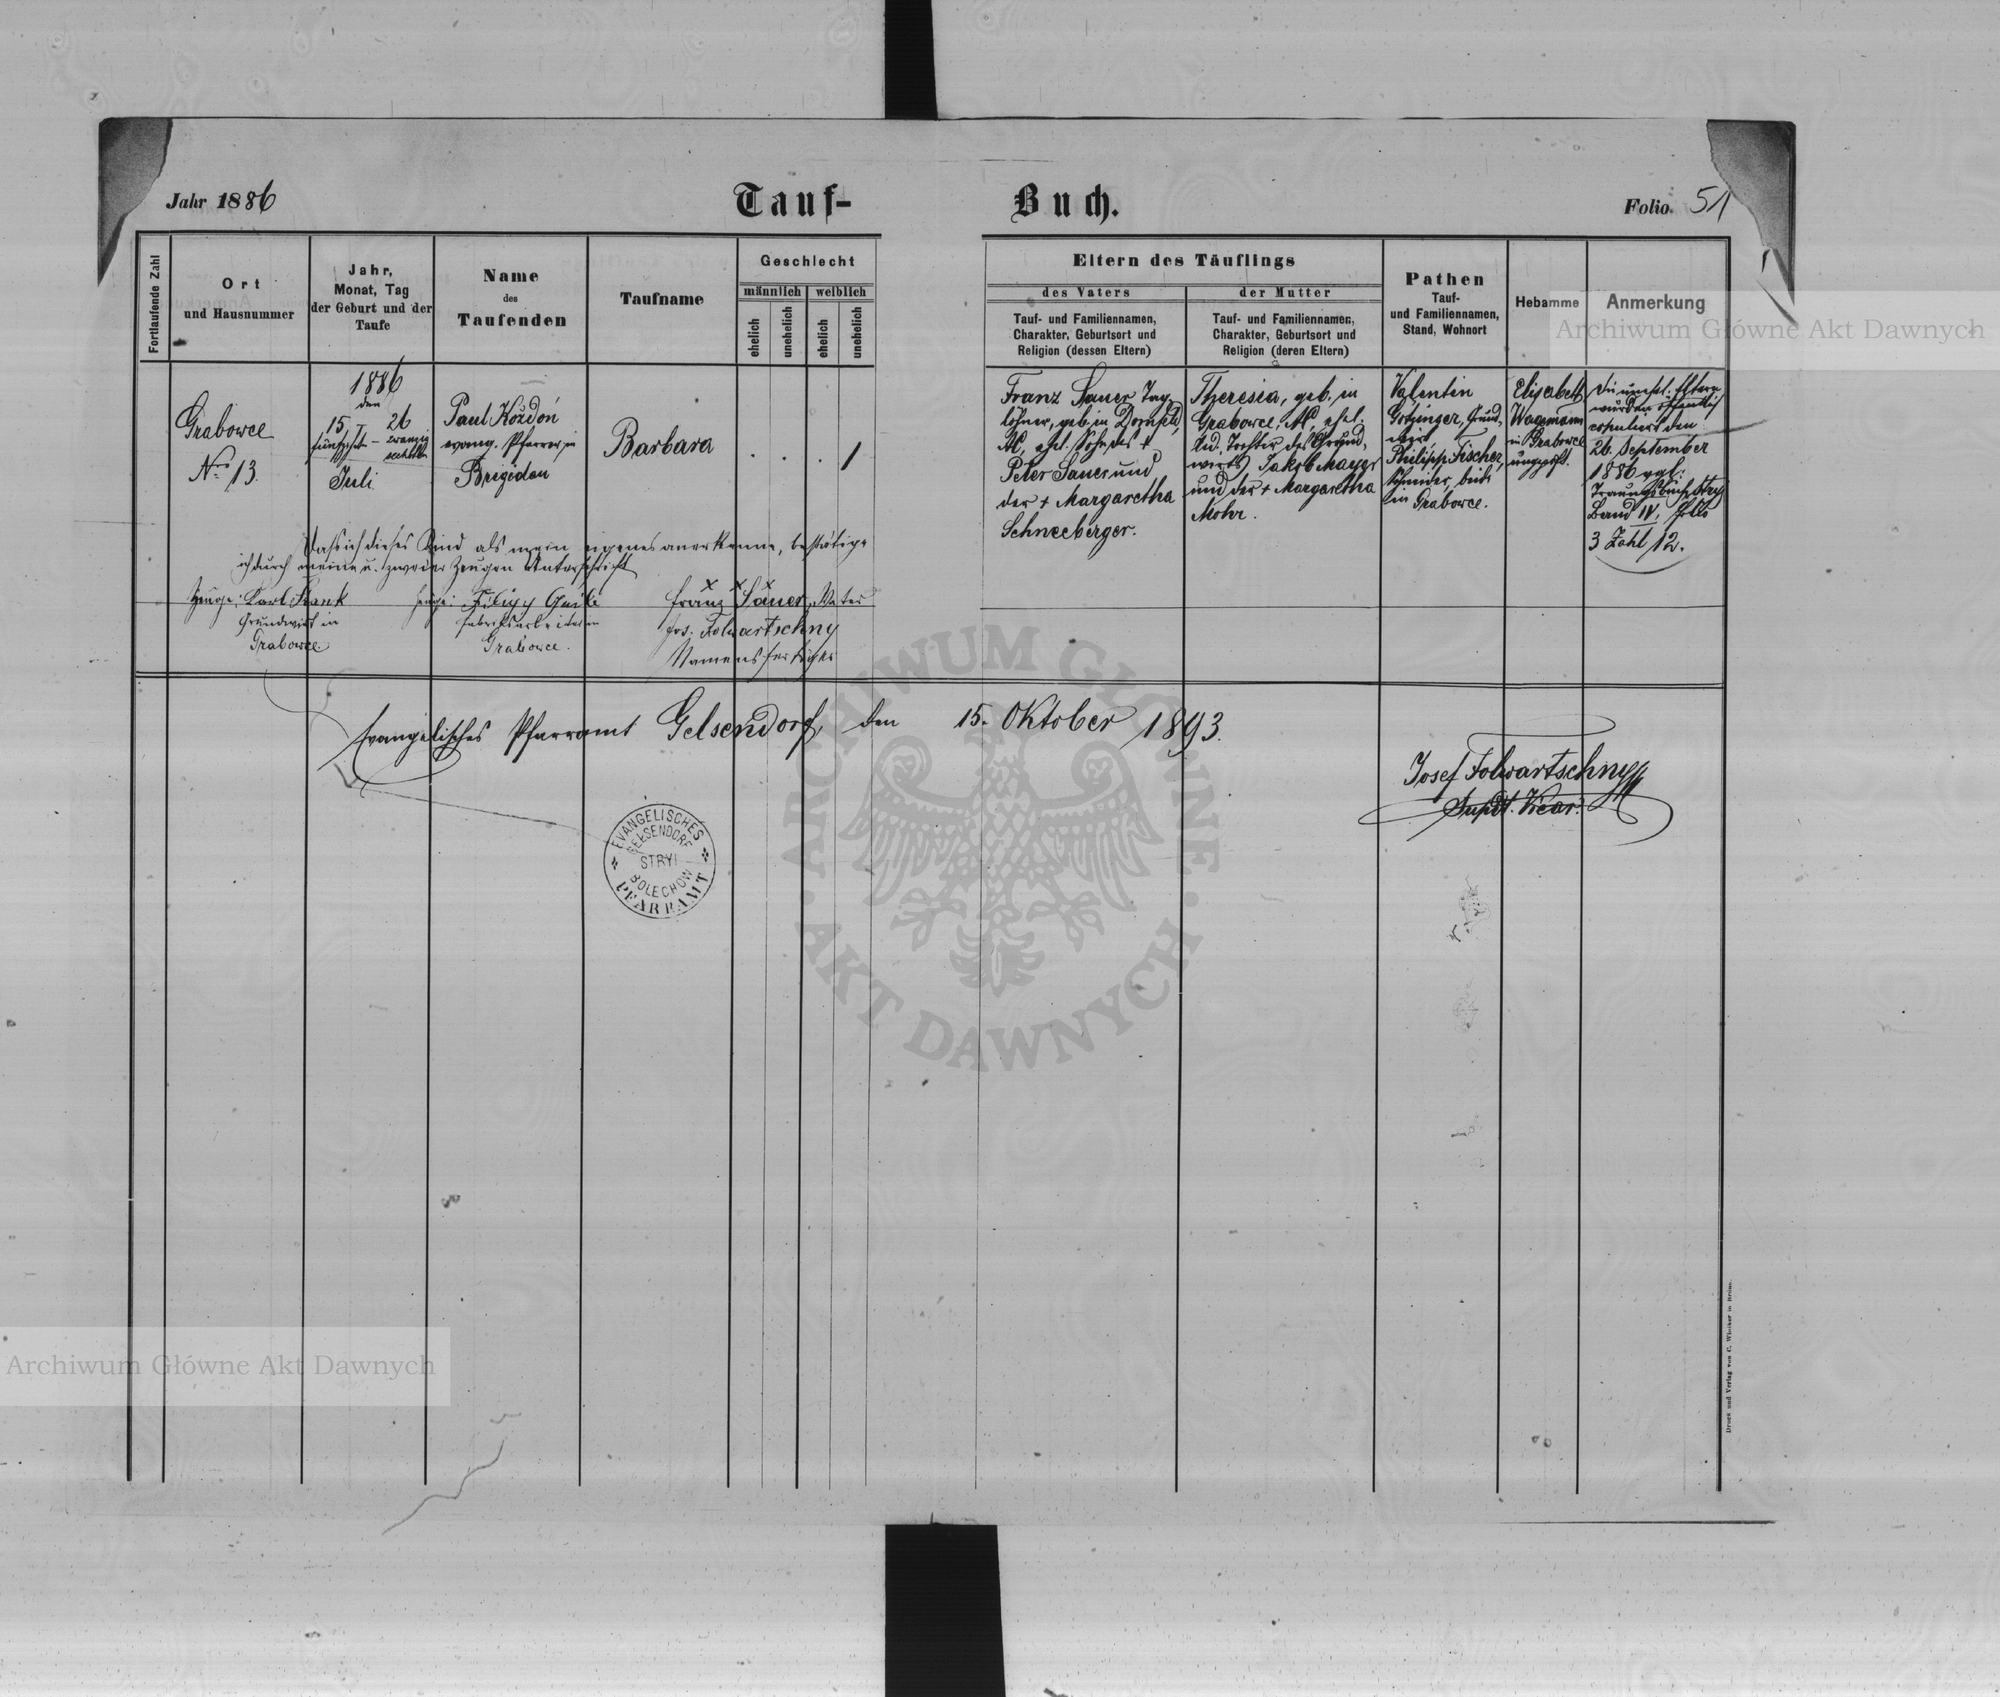 Jahr 1886
Tauf-
Buch.
Folio. 51
Fortlaufende Zahl
Ort
und Hausnummer
Jahr,
Monat, Tag
der Geburt und der
Taufe
Name
des
Taufenden
Taufname
Geschlecht
männlich
weiblich
ehelich
unehelich
ehelich
unehelich
Eltern des Täuflings
des Vaters
der Mutter
Tauf- und Familiennamen,
Charakter, Geburtsort und
Religion (dessen Eltern)
Tauf- und Familiennamen,
Charakter, Geburtsort und
Religion (deren Eltern)
Pathen
Tauf-
und Familiennamen,
Stand, Wohnort
Hebamme
Anmerkung
Archiwum Główne Akt Dawnych
Grabowce
No. 13.
1886
den
15 – 26
fünfzehn – zwanzig
sechsten
Juli
Paul Kozdoń
evang. Pfarrer in
Brigidau
Barbara
. . . 1
Franz Sauer Tag
löhner, geb. in Dornfeld,
AC, ehl. Sohn des +
Peter Sauer und
der + Margaretha
Schneeberger.
Theresia, geb. in
Grabowce, AC, ehel.
led. Tochter des Grund-
wirts Jakob Mayer
und der + Margaretha
Mohr.
Valentin
Grund-
wirt,
Philipp Fischer,
Schneider, beide
in Grabowce.
Elisabeth
Wagemann
in Grabowce
ungeprüft.
Die unehel. Eltern
wurden öffentlich
copuliert den
26. September
1886 vgl.
Trauungsbuch Stryj
Band IV, folio
3 Zahl 12.
Dass ich dieses Kind als mein eigenes anerkenne, bestätige
ich durch meine u. zweier Zeugen Unterschrift
Zeuge: Karl Skank
Grundwirt in
Grabowce.
Zeuge: Filipp
Fabriksarbeiter in
Grabowce.
x x x
Franz Sauer, Vater
Jos. Folwartschny
Namensfertiger
Evangelisches Pfarramt Gelsendorf, den 15. Oktober 1893.
Josef Folwartschny
Supdt. Vicar.
EVANGELISCHES
GELSENDORF
STRYI
BOLECHOW
PFARRAMT
ARCHIWUM GŁÓWNE
AKT DAWNYCH
Archiwum Główne Akt Dawnych